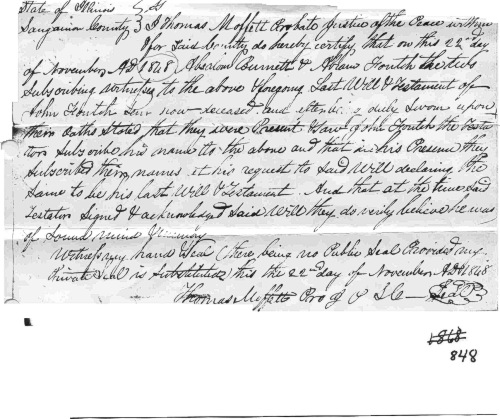 State of Illinois } SS
Sangamon County } I Thomas Moffett Probate Justice of the Peace within
& for Said County do hereby certify, that on this 22nd day
of November AD 1848 Absalom Burnett & Abram Foutch the two
Subscribing witnesses to the above & foregoing Last Will & Testament of
John Foutch Senr now deceased and after being duly Sworn upon
their oaths Stated that they were Present & Saw John Foutch the Testa
tor Subscribe his name to the above and that in his Presence they
Subscribed their names at his request to Said Will declaring the
Same to be his last Will & Testament. And that at the time Said
Testator Signed & acknowledged Said Will they do verily believe he was
of Sound mind & memory
Witness my hand & Seal (there being no Public Seal Provided my
Private Seal is Substituted) this the 22nd day of November AD 1848
Thomas Moffett Pro J P S C Seal
1868
848